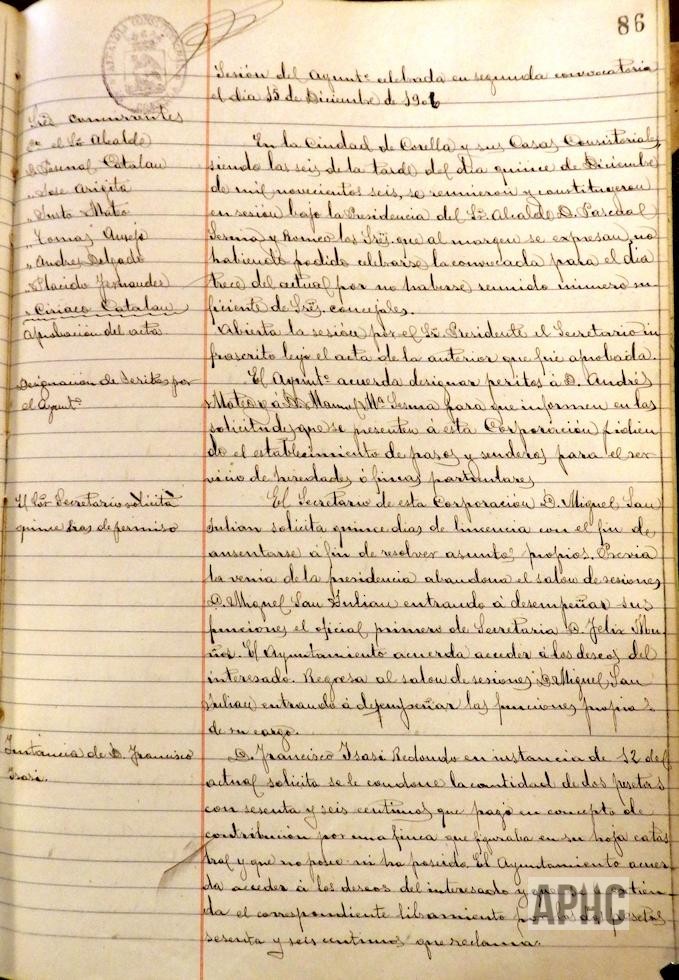 86
Sesión del Ayuntº celebrada en segunda convocatoria
el día 15 de Diciembre de 1906
Sres concurrentes
el Sr Alcalde
D. Pascual Catalan
" Jose Arigita
" Justo Mateo
" Tomas
" Andres Delgado
" Placido Fernandez
" Ciriaco Catalan
Aprobacion del acta.
En la Ciudad de Corella y sus Casas Consistoriales
siendo las seis de la tarde del dia quince de Diciembre
de mil novecientos seis, se reunieron y constituyeron
en sesión bajo la Presidencia del Sr Alcalde D. Pascual
Sesma y Romeo los Sres. que al margen se expresan, no
habiendo podido celebrarse la convocada para el dia
trece del actual por no haberse reunido número su
ficiente de Sres. concejales.
Abierta la sesión por el Sr Presidente el Secretario in
frascrito leyó el acta de la anterior que fué aprobada.
Designación de Peritos por
el Ayuntº
El Ayuntº acuerda designar peritos á D. Andrés
Mateo y á D. Manuel Mª Sesma para que informen en las
solicitudes que se presenten á esta Corporación pidien
do el establecimiento de pasos y senderos para el ser
vicio de heredades ó fincas particulares
El Sor Secretario solicita
quince dias de permiso
El Secretario de esta Corporación D. Miguel San
Julian solicita quince dias de lincencia con el fin de
ausentarse á fin de resolver asuntos propios. Previa
la venia de la presidencia abandona el salon de sesiones
D. Miguel San Julian entrando á desempeñar sus
funciones el oficial primero de Secretaria D. Felix Mu
ñoz. El Ayuntamiento acuerda acceder á los deseos del
interesado. Regresa al salon de sesiones D. Miguel San
Julian entrando á desempeñar las funciones propias
de su cargo.
Instancia de D. Francisco
Isasi.
D. Francisco Isasi Redondo en instancia de 12 del
actual solicita se le condone la cantidad de dos pesetas
con sesenta y seis centimos que pagó en concepto de
contribución por una finca que figuraba en su hoja catas
tral y que no posee ni ha poseido. El Ayuntamiento acuer
da acceder á los deseos del interesado y que
da el correspondiente libramiento por las dos pesetas
sesenta y seis centimos que reclama.
APHC